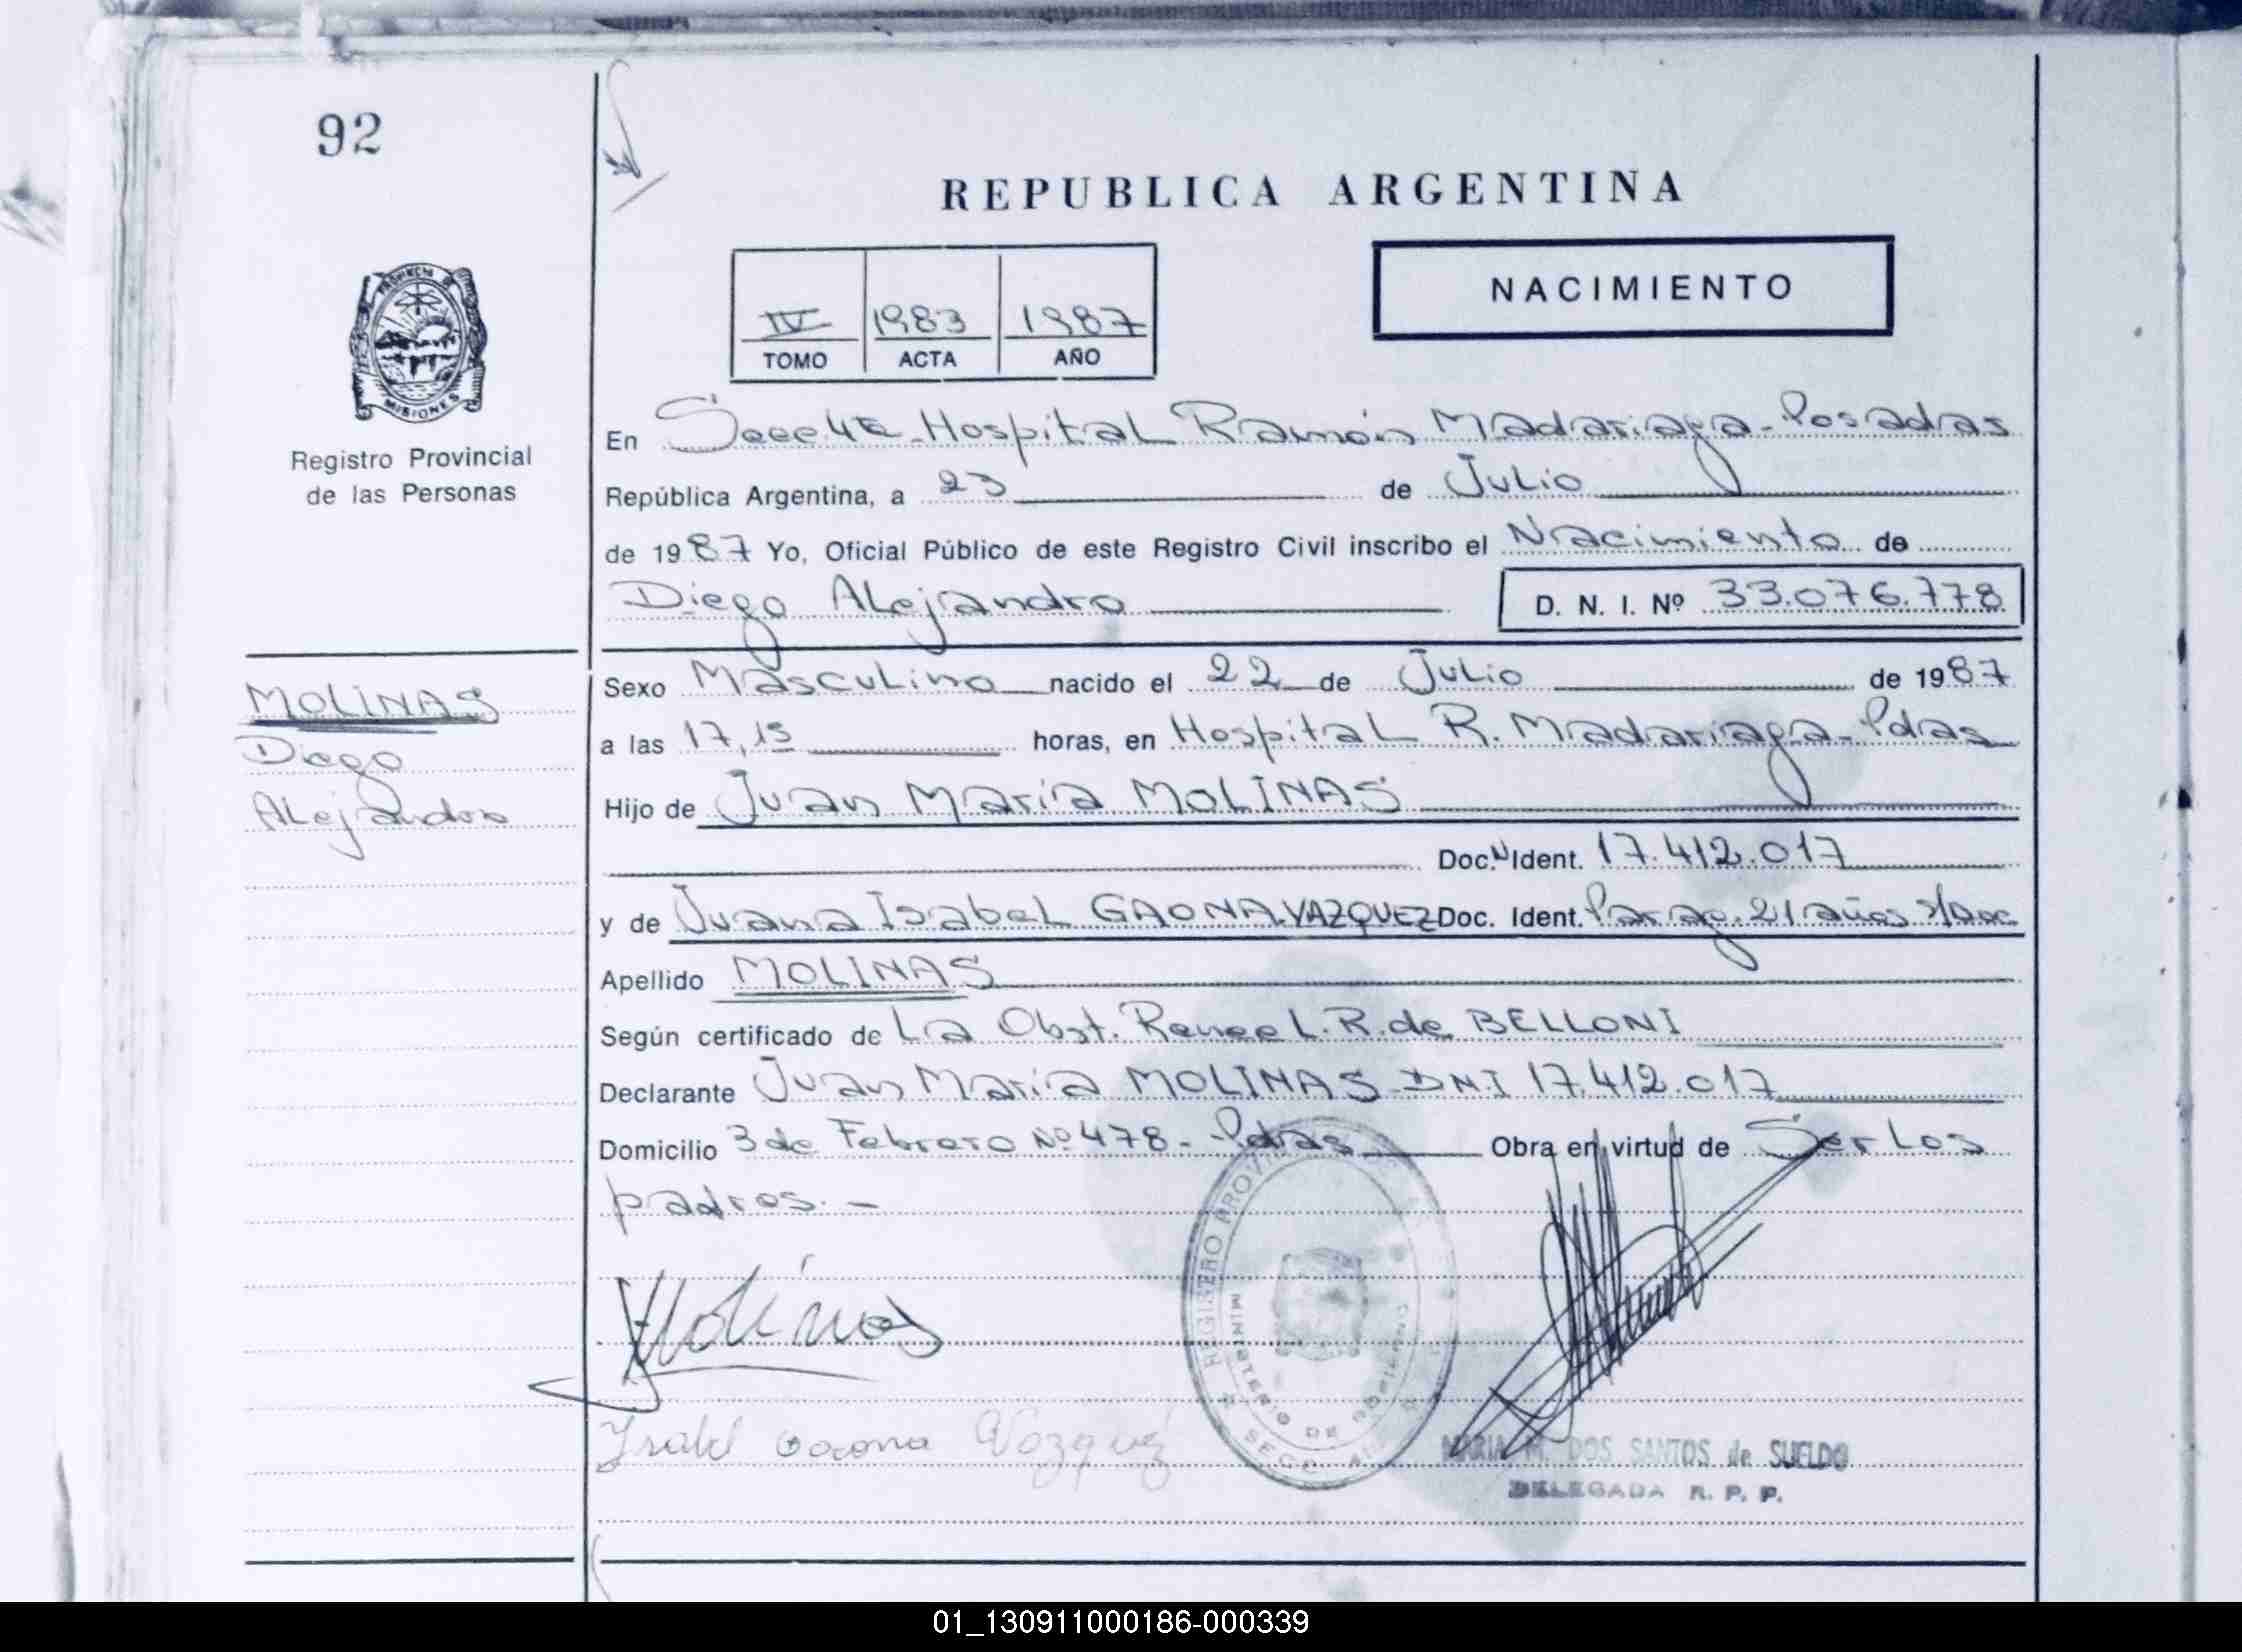 92
REPUBLICA ARGENTINA
NACIMIENTO
IV 1983 1987
TOMO ACTA AÑO
PROVINCIA DE
MISIONES
Registro Provincial
de las Personas
En Secc 4ta Hospital Ramón Madariaga - Posadas
República Argentina, a 23 de Julio
de 1987 Yo, Oficial Público de este Registro Civil inscribo el Nacimiento de
Diego Alejandro D. N. I. Nº 33.076.778
MOLINAS
Diego
Alejandro
Sexo Masculino nacido el 22 de Julio de 1987
a las 17,15 horas, en Hospital R. Madariaga - Pdas
Hijo de Juan María MOLINAS
Doc. Ident. 17.412.017
y de Juana Isabel GAONA VAZQUEZ Doc. Ident. Parag. 21 años s/doc
Apellido MOLINAS
Según certificado de La Obst. Renee L. R. de BELLONI
Declarante Juan María MOLINAS DNI 17.412.017
Domicilio 3 de Febrero Nº 478 - Pdas Obra en virtud de Ser los
padres. -
Molinas
REGISTRO PROVIN
MINISTERIO DE GOBIERNO
Isabel Gaona Vazquez
MARIA M. DOS SANTOS de SUELDO
DELEGADA R. P. P.
01_130911000186-000339